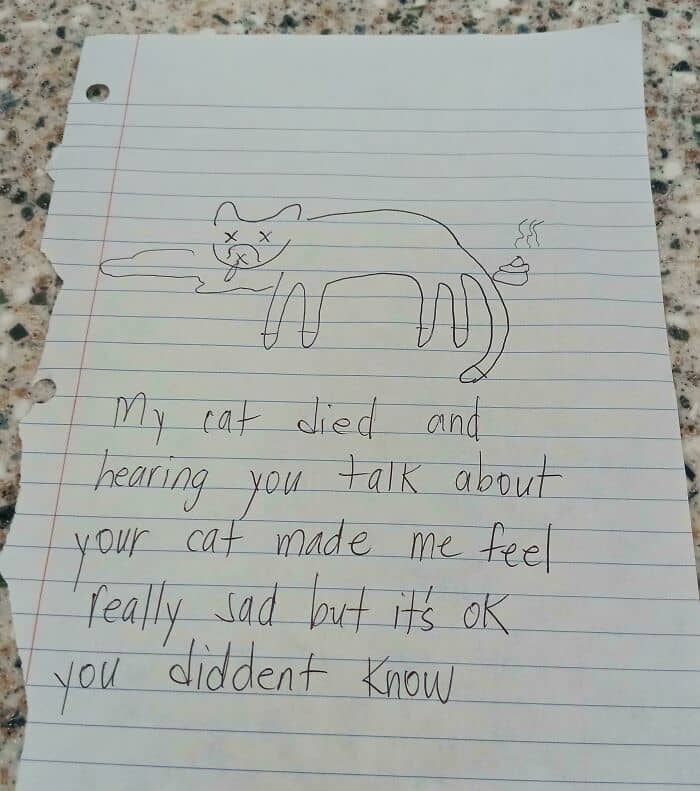 My cat died and
hearing you talk about
your cat made me feel
really sad but it's ok
you diddent know